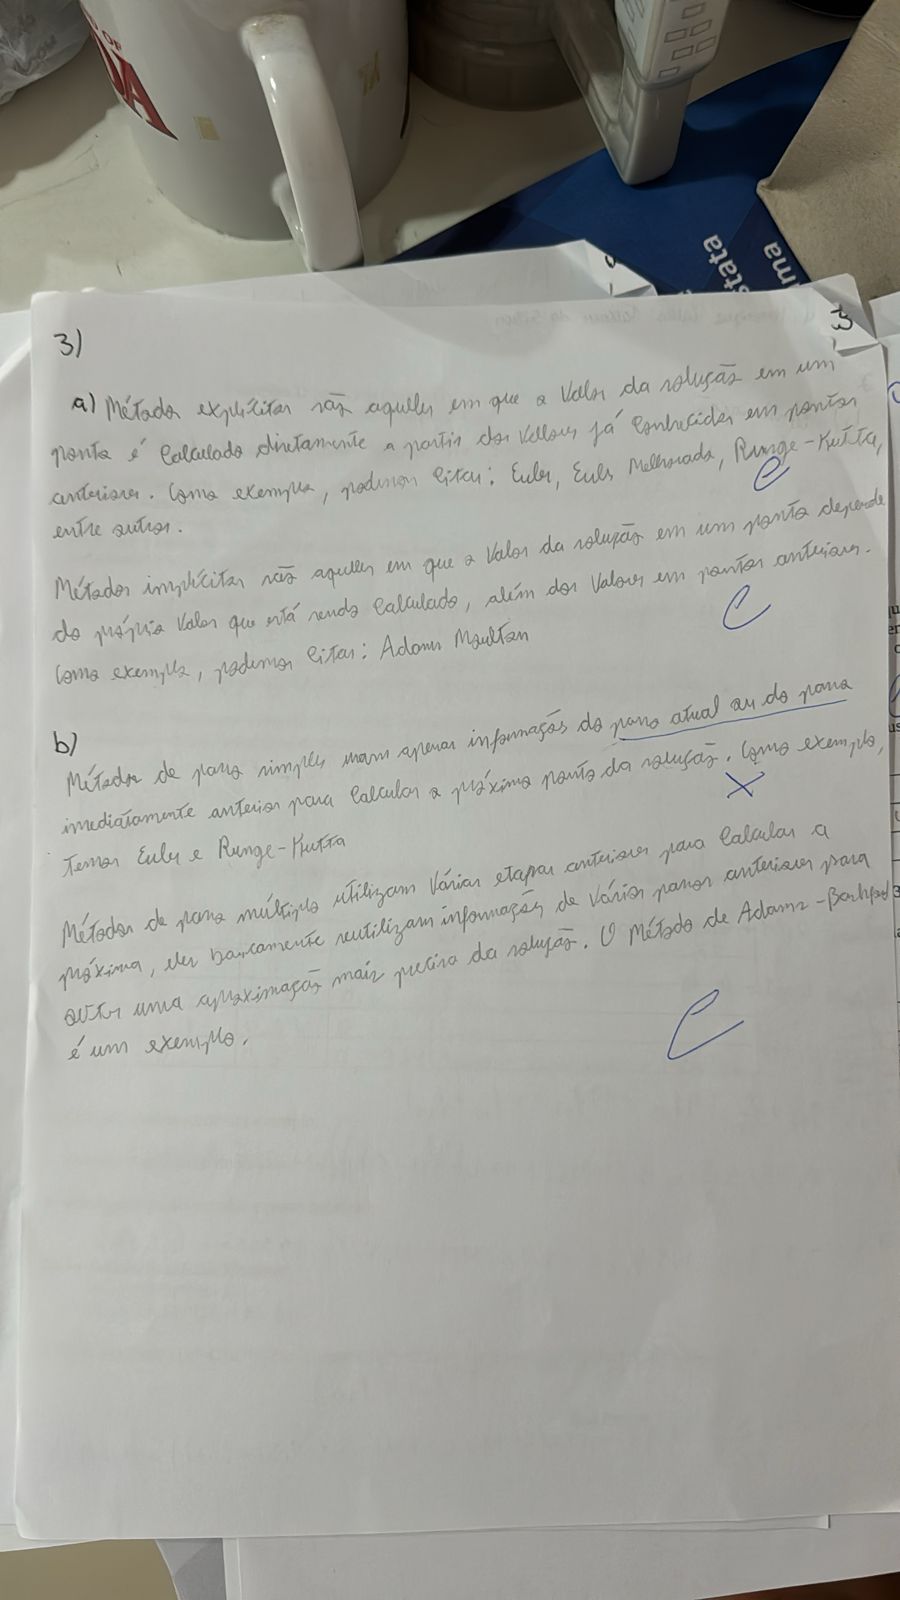 OF
DA
ma
stata
3)
a) Métodos explícitos são aqueles em que o valor da solução em um
ponto é calculado diretamente a partir dos valores já conhecidos em pontos
anteriores. Como exemplo, podemos citar: Euler, Euler Melhorado, Runge-Kutta,
entre outros.
C
Métodos implícitos são aqueles em que o valor da solução em um ponto depende
do próprio valor que está sendo calculado, além dos valores em pontos anteriores.
Como exemplo, podemos citar: Adams Moultan
C
b)
Métodos de passo simples usam apenas informações do passo atual ou do passo
imediatamente anterior para calcular o próximo ponto da solução. Como exemplo,
X
temos Euler e Runge-Kutta
Métodos de passo múltiplo utilizam várias etapas anteriores para calcular a
próxima, eles basicamente reutilizam informações de vários passos anteriores para
obter uma aproximação mais precisa da solução. O Método de Adams-
é um exemplo.
C